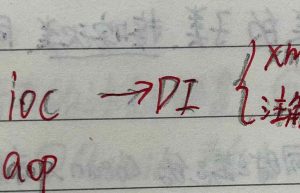 xm
ioc → DI {
注解
aop